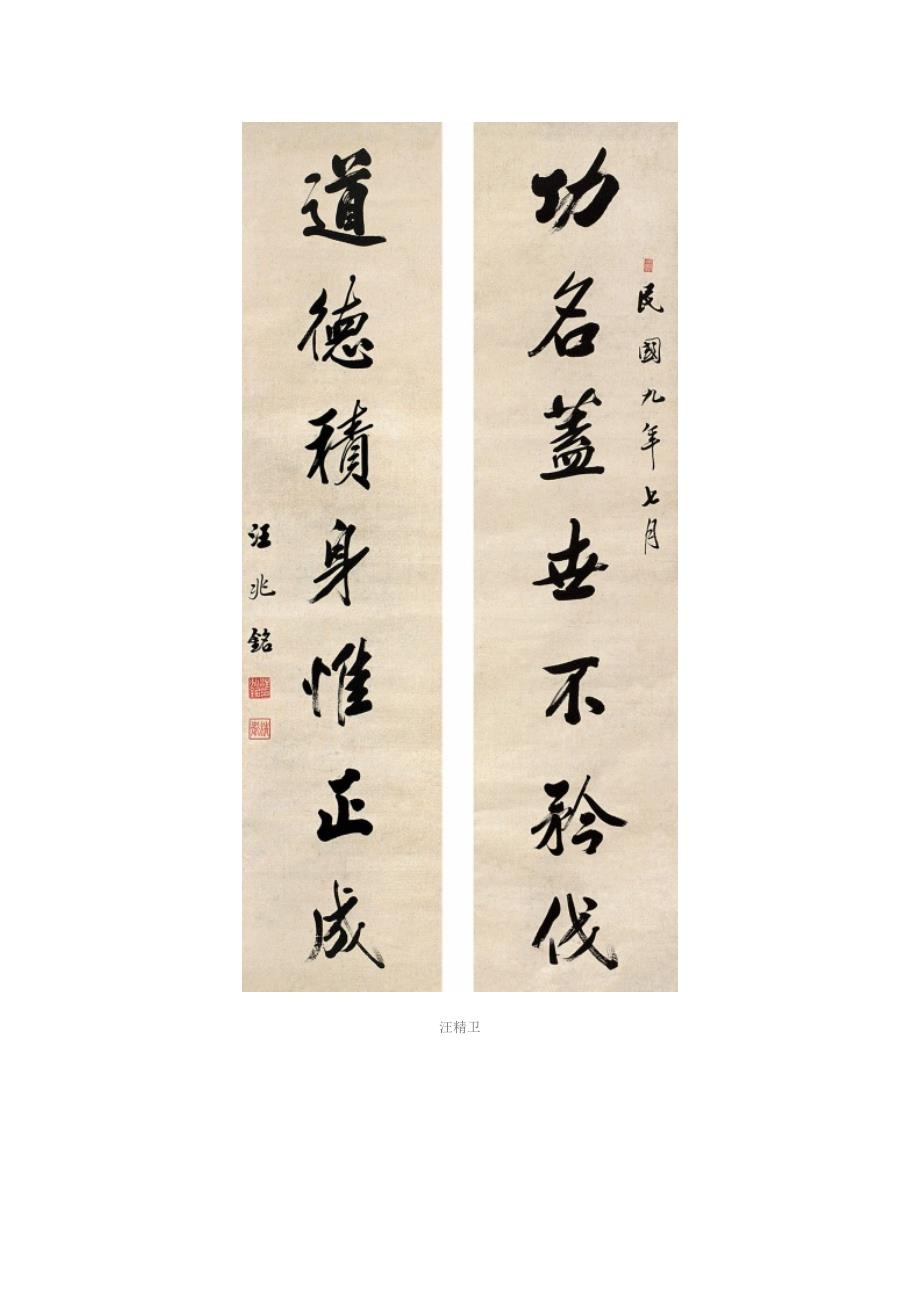 民國九年七月
功名蓋世不矜伐
道德積身惟正成
汪兆銘
汪精卫